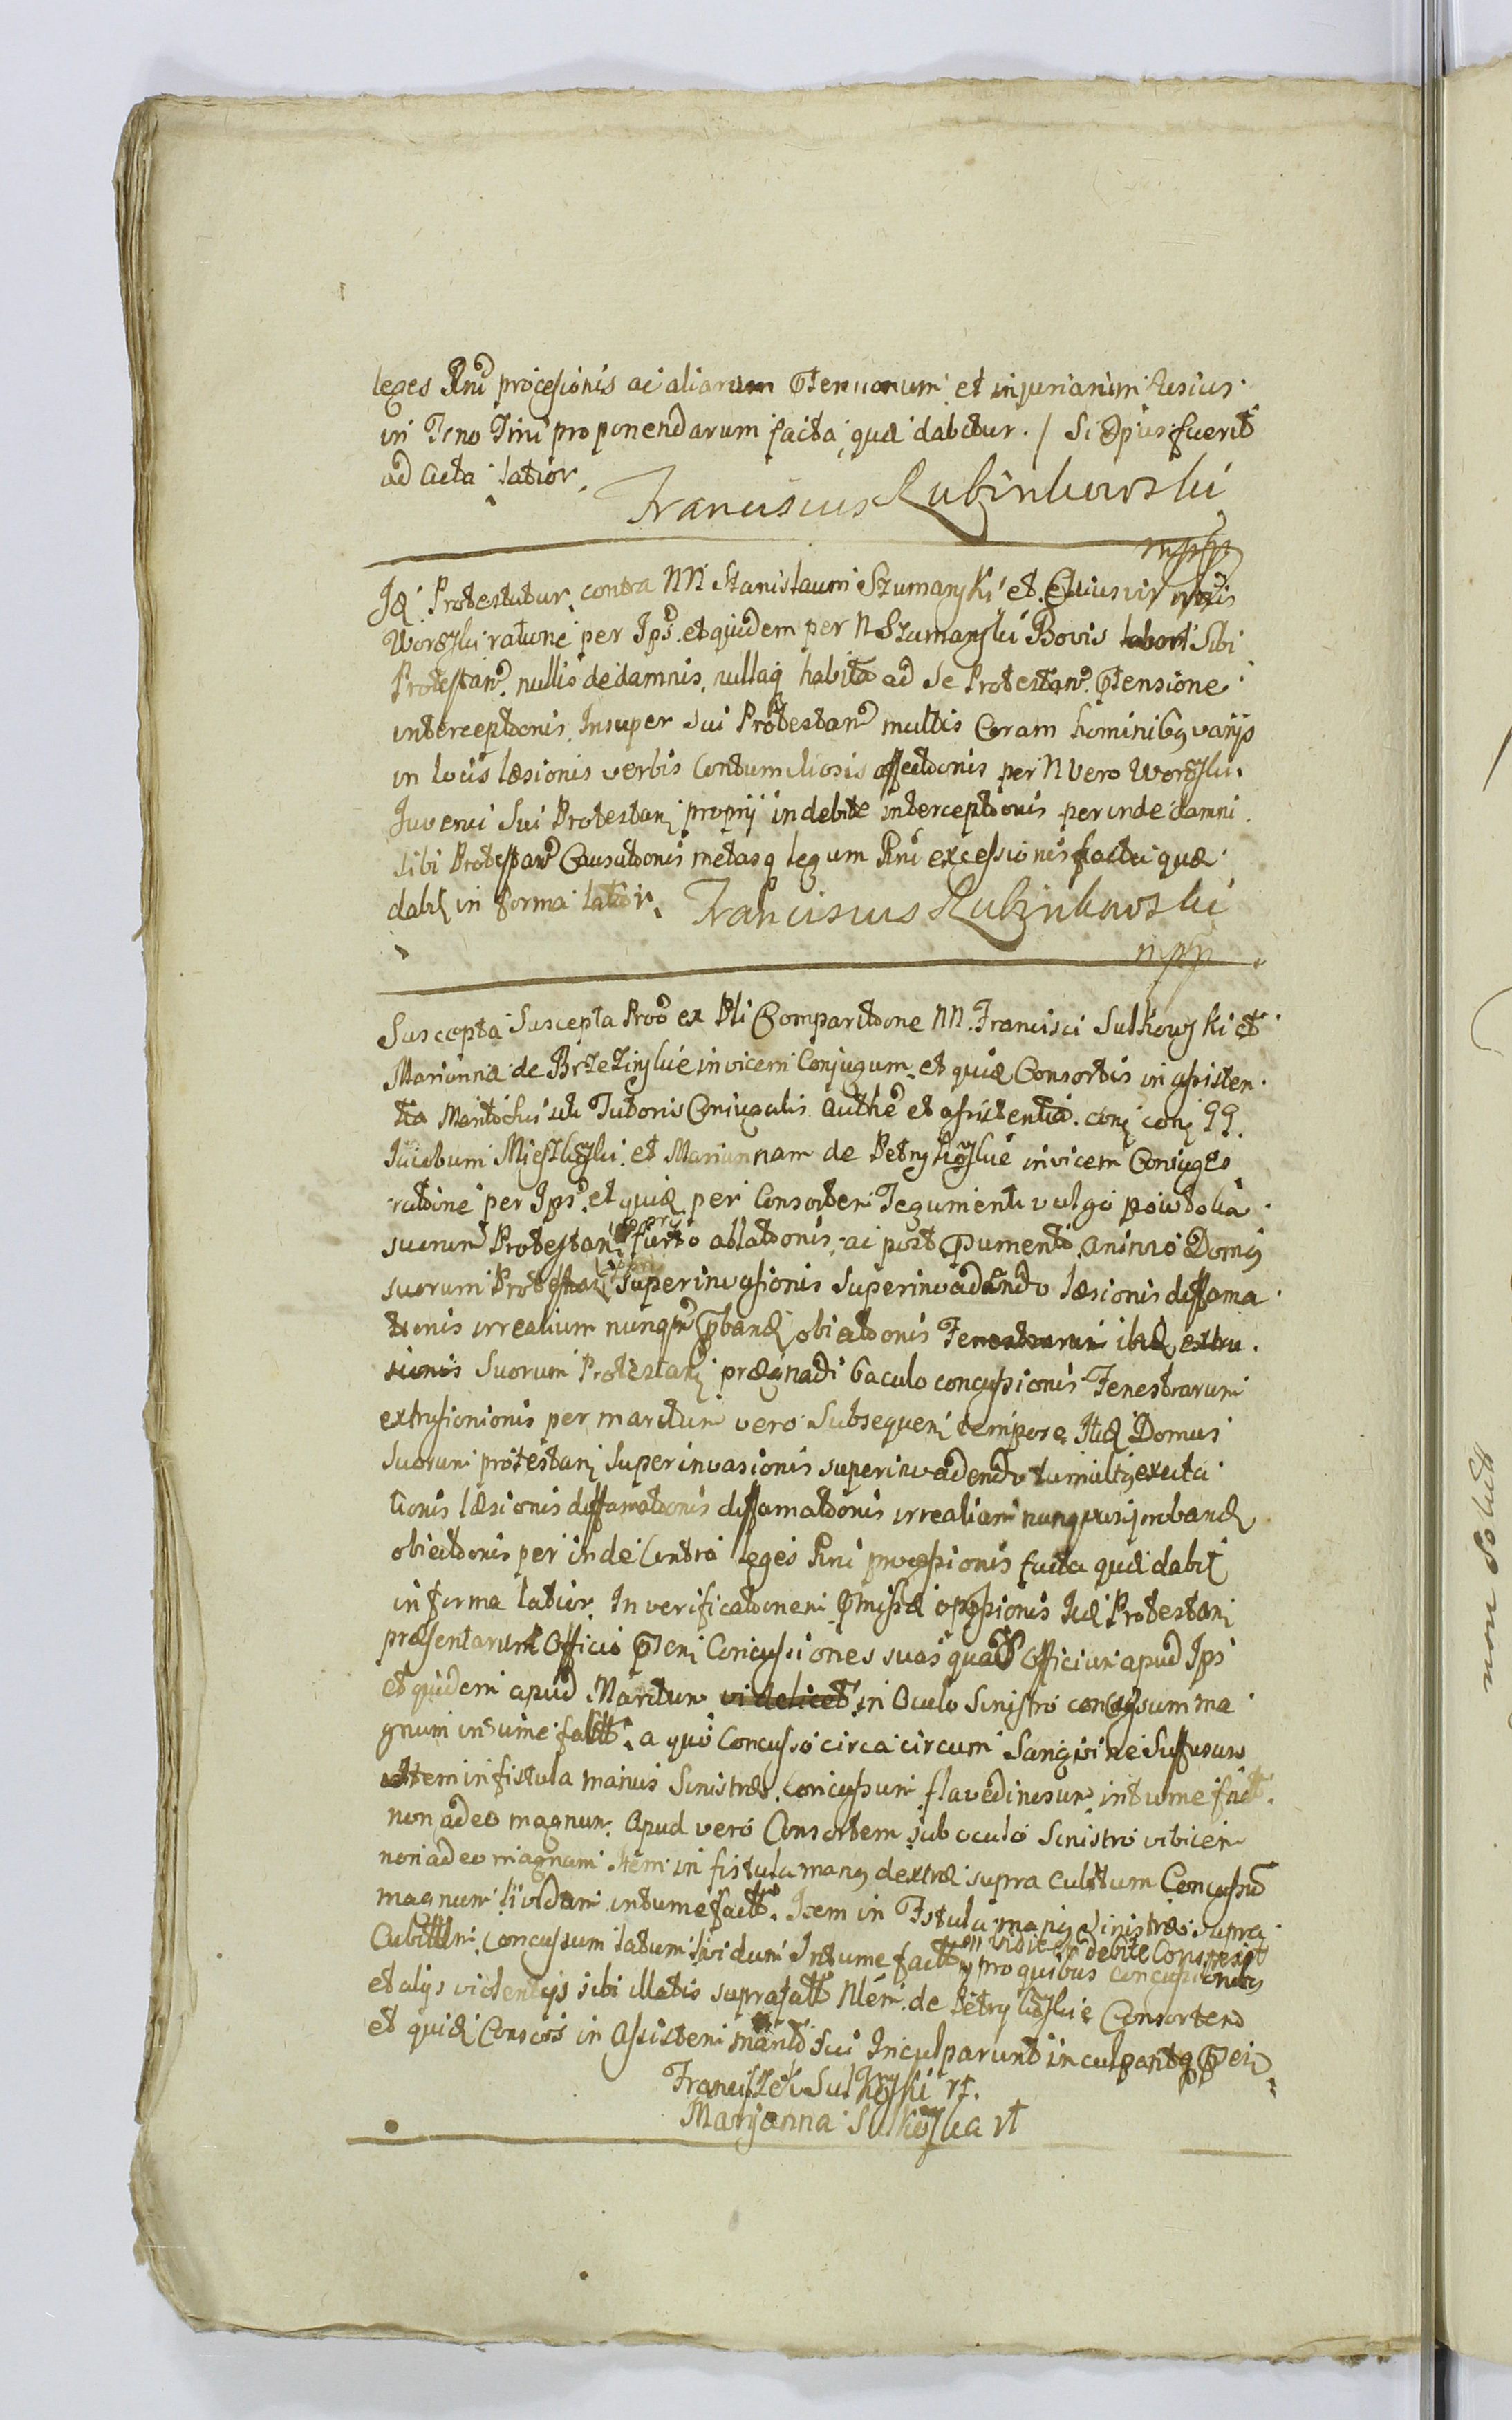 leges Rni procesionis ac aliarum Ptensionum et injuriarum fusius
in Tno Jni proponendarum facta, quæ dabitur. / Si Opus fuerit
ad Acta latior.
Franciscus Rubinkowski
mpp
Id Protestatur contra NN Stanislaum Szumanski et
Worski ratione per Ips et quidem per N Szumanski Bovis sibi
Protestan nullis de damnis nullaq habita ad se Protestan Ptensione
interceptionis Insuper sui Protestan multis Coram hominibq varijs
in locis læsionis verbis Contumeliosis affectionis per N vero Worski
Juvenci sui Protestan proprij indebite interceptionis perinde damni
sibi Protestan Causationis metasq legum Rni excessionis facta quæ
dabit in forma latior. Franciscus Rubinkowski
mpp
Suscepta Suscepta Prot ex Pli Comparitione NN. Francisci Sulkowski et
Marianna de Brzezinskie invicem Conjugum et quid Consortis in assisten
tia Mariti sui uti Tutoris Conjugalis Authe et assistentia con con GG.
Jacobum et Mariannam de invicem Conjuges
ratione per Ips et quid per Consortem Tegumenti vulgo
suorum Protestan furto ablationis, ac post Pument animo Domq
suorum Protestan superinvasionis superinvadendo læsionis diffama
tionis irrealium nunqm pband obiectionis Fenestrarum ibid extru
sionis Suorum Protestan prægnadi baculo concussionis Fenestrarum
extrusionionis per maritum vero Subsequen tempore Itid Domus
Suorum protestan superinvasionis superinvadendo tumultq excita
tionis læsionis diffamationis diffamationis irrealium nunquam proband
obiectionis per inde Contra leges Rni processionis facta quæ dabit
in forma latior. In verificationem Pmissæ Iid Protestan
præsentarunt Officio Pten Concussiones suas quas Officium apud Ips
et quidem apud Maritum videlicet in Oculo Sinistro concussum ma
gnum intumefatt a quo Concusso circa circum Sangvine Suffusum
Item in fistula manus Sinistræ Concussum flavedinosum intumefact
non adeo magnum. Apud vero Consortem sub oculo Sinistro vibicem
non adeo magnam Item in fistula manq dextræ supra cubitum Concussum
magnum lividum intumefatt. Item in Fistula manq Sinistræ supra
Cubittum Concussum latum lividum Intumefatt Vidit et debite Conspexit
pro quibus concussionibq
et alijs violentijs sibi illatis suprafatt Nlem de Consortem
et quid Consors in Assisten marit sui Inculparunt inculpantq
Franciszek Sulkowski rt.
Maryanna Sulkowska rt